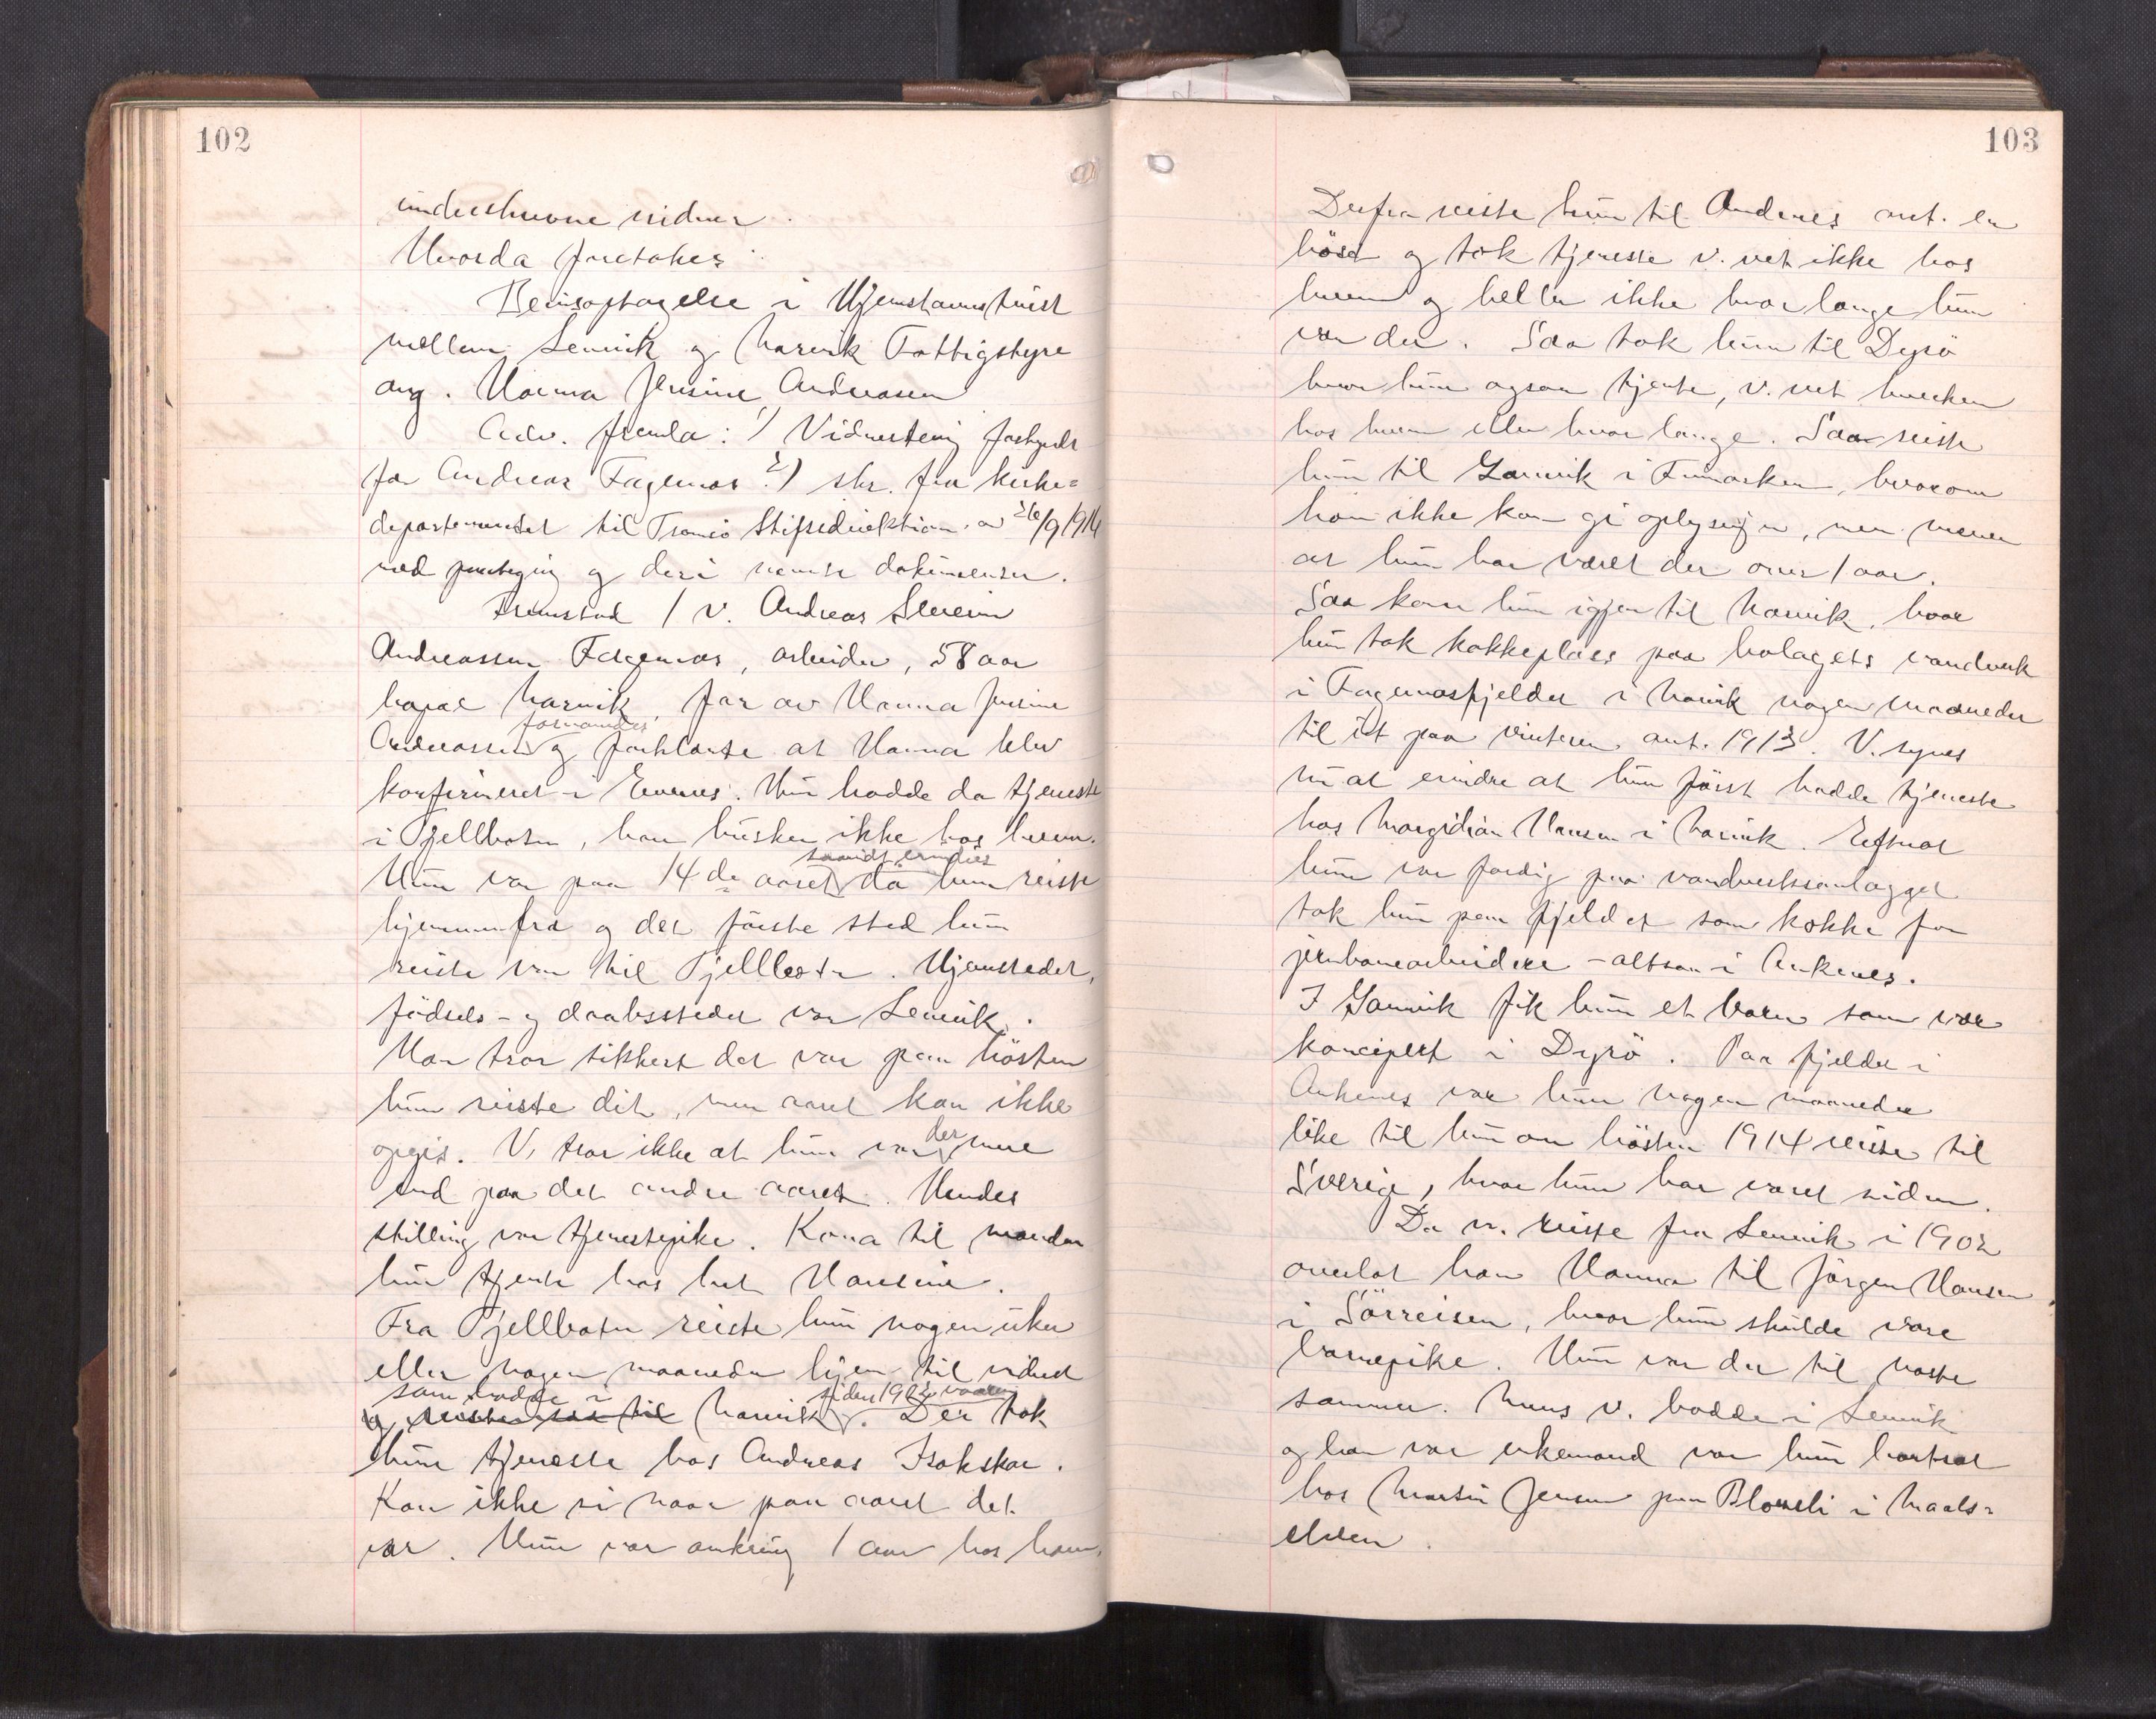 102
underskrevne vidner.
Hvorda foretokes:
Bevisoptagelse i Hjemstavnstvist
mellem Lenvik og Narvik Fattigstyre
ang. Hanna Jensine Andreasen
Adv. fremla: 1) Vidnestevn forkyndt
for Andreas Fagernes 2) skr. fra Kirke=
departementet til Tromsø Stiftsdirektion av 26/9 1914
med paategn og deri nevnte dokumenter.
Fremstod 1 v. Andreas Severin
Andreassen Fagernes, arbeider, 58 aar
bopæl Narvik, far av Hanna Jensine
formanedes
Andreassen og forklarte at Hanna blev
konfirmeret i Evenes. Hun hadde da tjeneste
i Fjellbotn, han husker ikke hos hvem.
saavidt erindres
Hun var paa 14de aaret da hun reiste
hjemmenfra og det første sted hun
reiste var til Fjellbotn. Hjemstedet,
fødsels- og daabsstedet var Lenvik.
Han tror sikkert det var paa høsten
hun reiste dit, men aaret kan ikke
der
opgis. V. tror ikke at hun var mere
end paa det andre aaret. Hendes
stilling var tjenestepike. Kona til manden
hun tjente hos het Hansine.
Fra Fjellbotn reiste hun nogen uker
eller nogen maaneder hjem til vidnet
som bodde i siden 1902 vaaren
og reiste saa til Narvik. Der tok
hun tjeneste hos Andreas Isakskar.
Kan ikke si naar paa aaret det
var. Hun var omkring 1 aar hos ham.
103
Derfra reiste hun til Andenes ant. en
høst og tok tjeneste v. vet ikke hos
hvem og heller ikke hvor lange hun
var der. Saa tok hun til Dyrö
hvor hun ogsaa tjente, v. vet hverken
hos hvem eller hvor lange. Saa reiste
hun til Gamvik i Finmarken, hvorom
han ikke kan gi oplysning, men mener
at hun har været der over 1 aar.
Saa kom hun igjen til Narvik, hvor
hun tok kokkeplass paa bolagets vandverk
i Fagernesfjeldet i Narvik nogen maaneder
til ut paa vinteren ant. 1913. V. synes
nu at erindre at hun først hadde tjeneste
hos Margidian Hansen i Narvik. Efterat
hun var færdig paa vandverksanlægget
tok hun paa fjeldet som kokke for
jernbanearbeidere - altsaa i Ankenes.
I Gamvik fik hun et barn som var
koncipert i Dyrö. Paa fjeldet i
Ankenes var hun nogen maaneder
like til hun om høsten 1914 reiste til
Sverige, hvor hun har været siden.
Da v. reiste fra Lenvik i 1902
overlot han Hanna til Jørgen Hansen
i Sørreisen, hvor hun skulde være
barnepike. Hun var der til næste
sommer. Mens v. bodde i Lenvik
og han var enkemand var hun bortsat
hos Martin Jensen paa Blomli i Maals=
elven.